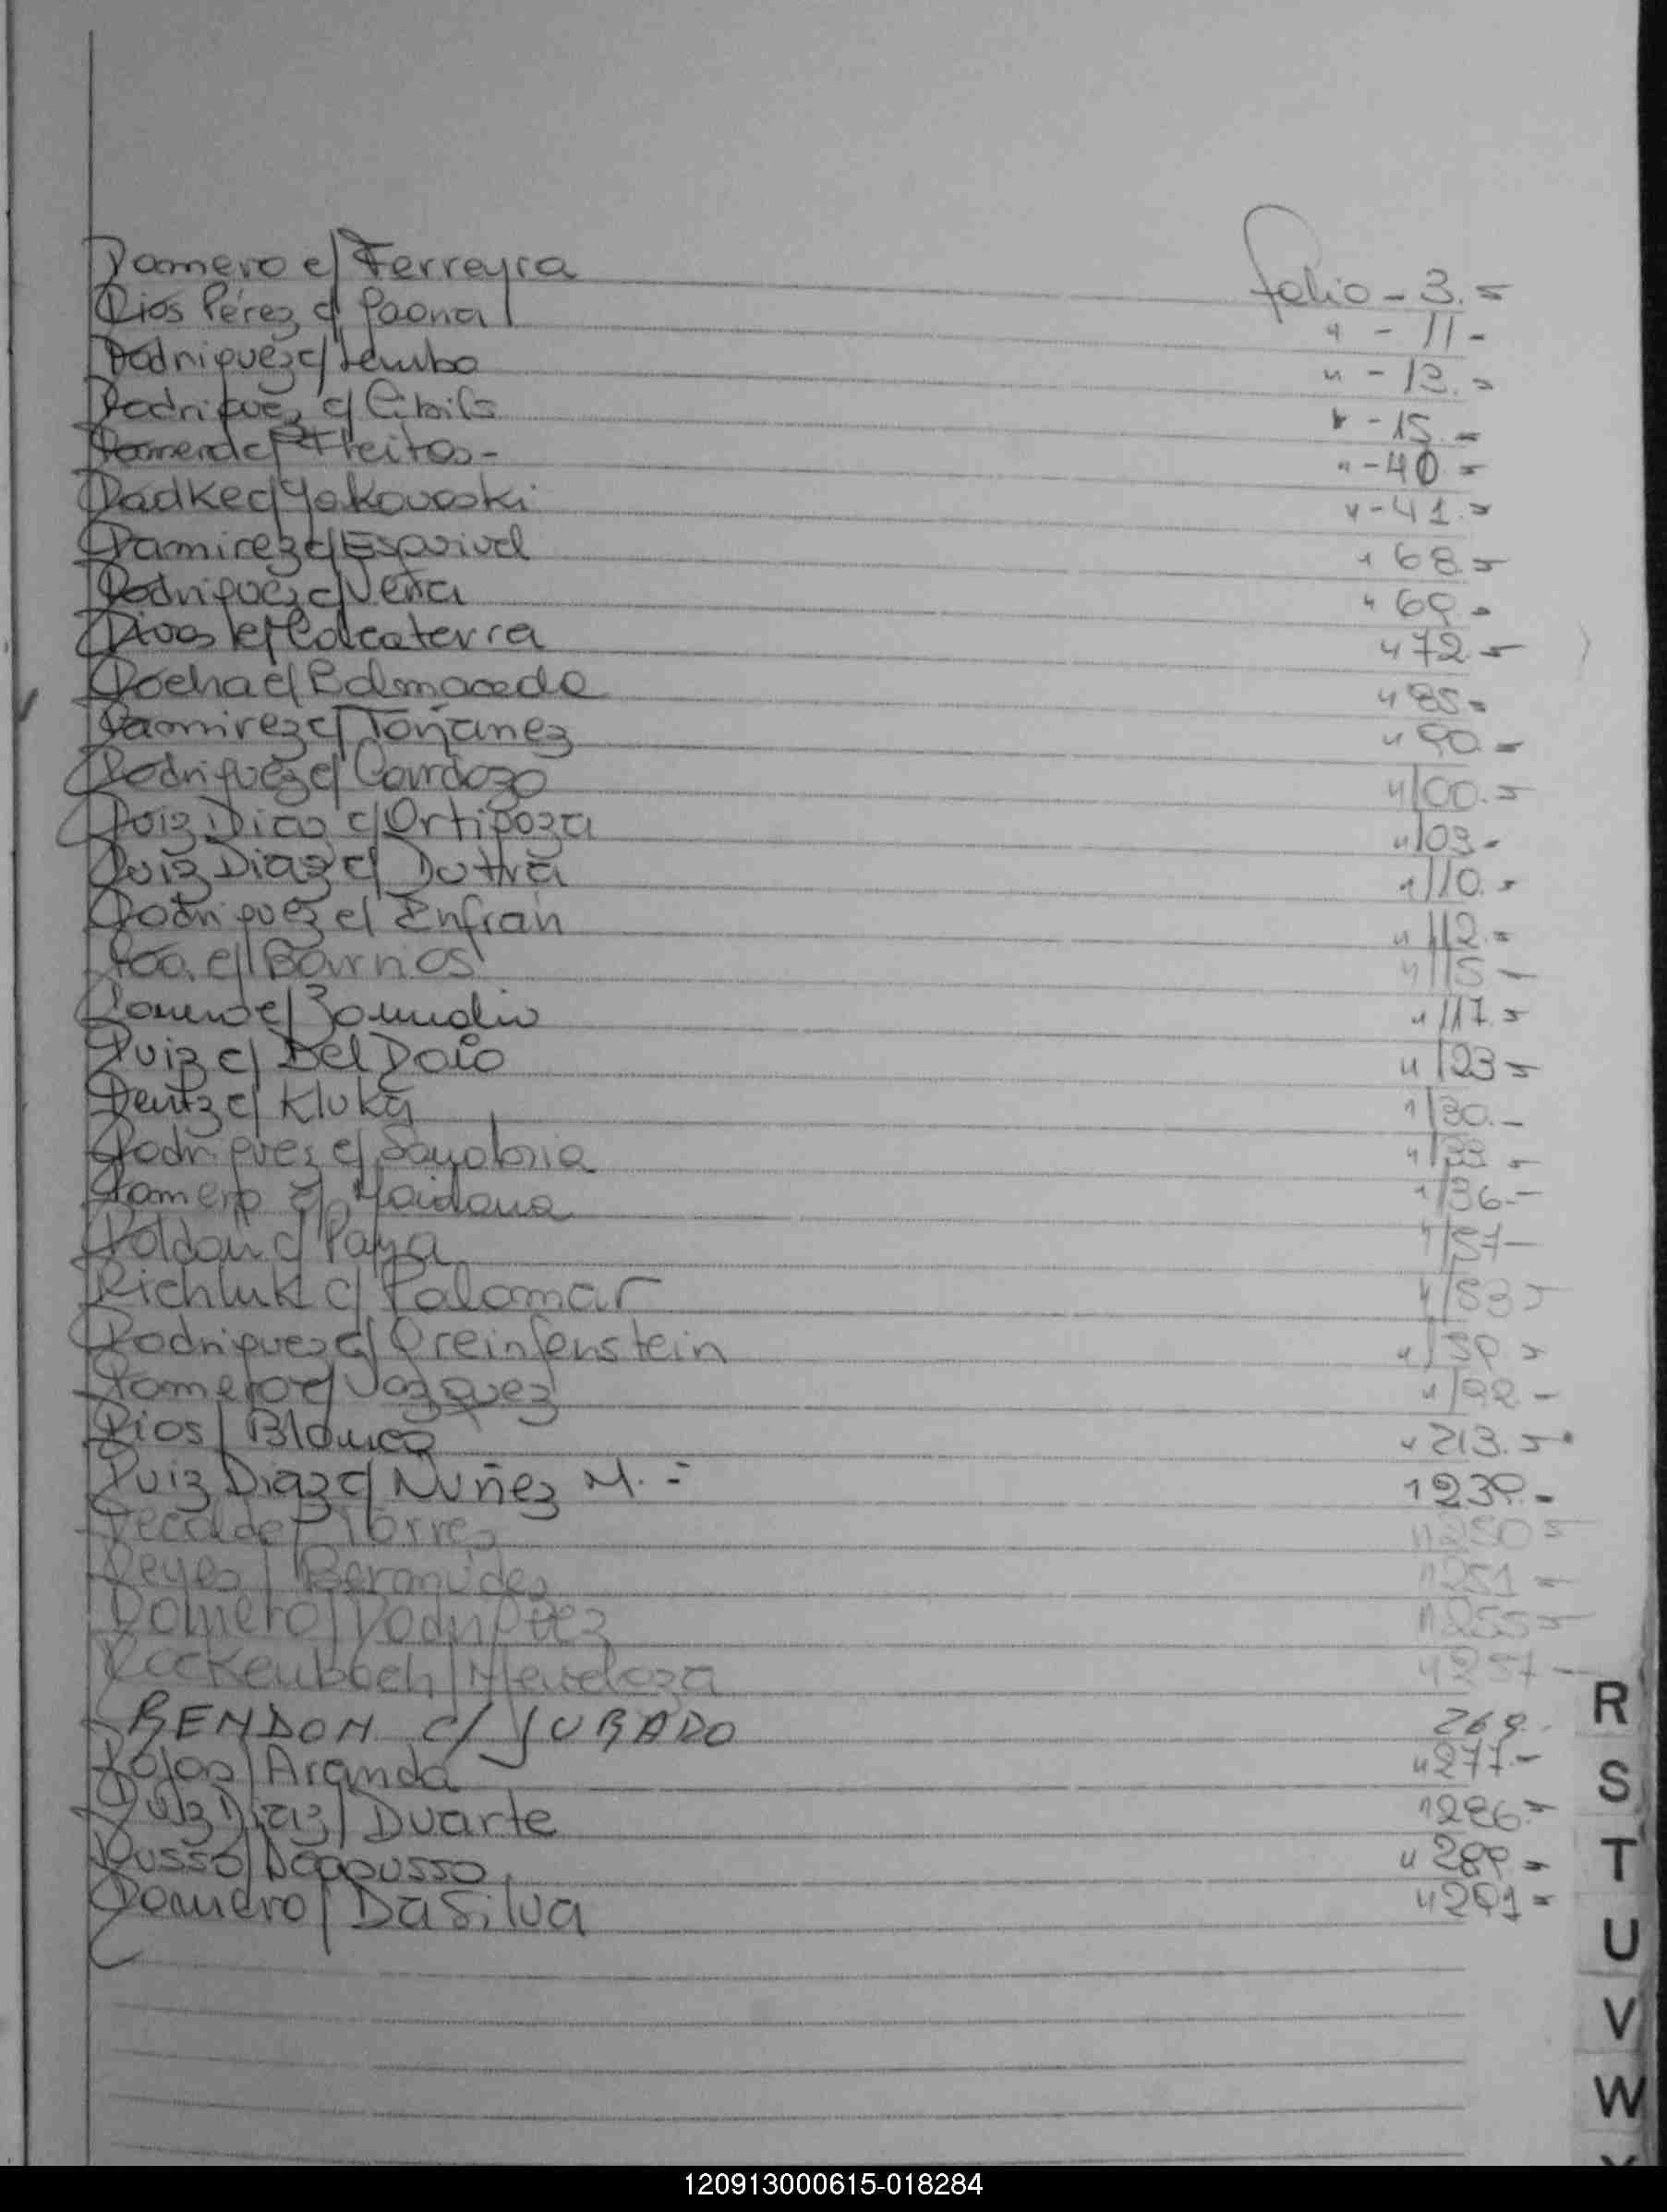 Romero c/ Ferreyra folio - 3.=
Rios Pérez c/ Gaona " - 11 -
Rodriguez c/ Lemba " - 13.=
Rodriguez c/ " - 15.=
Romero c/ Fleitas - " - 40 =
Radke c/ Yakovoski " - 41.=
Ramirez c/ Esquivel " 68.=
Rodriguez c/ Vera " 69.=
Rivas c/ Colcaterra " 72.=
Rocha c/ Balmaceda " 85=
Ramirez c/ Torjanez " 90.=
Rodriguez c/ Cardozo " 100.=
Ruiz Diaz c/ Ortigoza " 103.-
Ruiz Diaz c/ Dutra " 110.=
Rodriguez c/ Enfran " 112.=
Roa c/ Barrios " 115 -
Romero c/ Zamudio " 117.=
Ruiz c/ Del Doio " 123 =
Rentz c/ Kluka " 130.-
Rodriguez c/ Sanabria " 133 =
Romero c/ Maidana " 136.-
Roldan c/ Paya " 157-
Richluk c/ Palomar " 183 =
Rodriguez c/ Greinfenstein " 189.=
Romero c/ Vazquez " 192 -
Rios / Blanco " 213.=
Ruiz Diaz c/ Nuñez M. = " 239.-
Recalde / Torres " 250 =
Reyes / Bermudez " 251 =
Romero / Rodriguez " 255=
Rockenbach / Mendoza " 257 -
RENDON c/ JURADO 269.
Rojas / Aranda " 277.-
Ruiz Diaz / Duarte " 286.=
Russo / " 289.=
Romero / Da Silva " 291 =
R
S
T
U
V
W
120913000615-018284